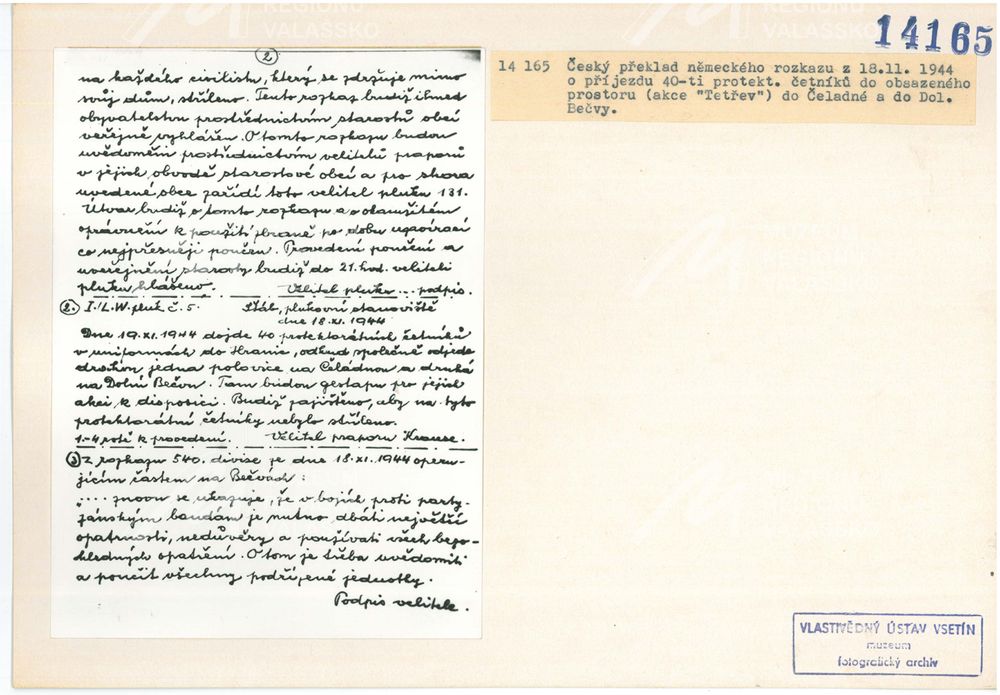 14165
14 165 Český překlad německého rozkazu z 18.11. 1944
o příjezdu 40-ti protekt. četníků do obsazeného
prostoru (akce "Tetřev") do Čeladné a do Dol.
Bečvy.
2
na každého civilistu, který se zdržuje mimo
svůj dům, stříleno. Tento rozkaz budiž ihned
obyvatelstvu prostřednictvím starostů obcí
veřejně vyhlášen. O tomto rozkazu budou
uvědoměni prostřednictvím velitelů praporů
v jejich obvodě starostové obcí a pro shora
uvedené obce zařídí toto velitel pluku 131.
Útvar budiž o tomto rozkazu a o okamžitém
oprávnění k použití zbraně po dobu uzavírací
co nejpřesněji poučen. Provedení poučení a
uveřejnění starosty budiž do 21. hod. veliteli
pluku hlášeno. Velitel pluku ... podpis.
2. I./L.W. pluk č. 5. Štáb, plukovní stanoviště
dne 18. XI. 1944
Dne 19. XI. 1944 dojde 40 protektorátních četníků
v uniformách do Hranic, odkud společně odjede
drahou jedna polovice na Čeladnou a druhá
na Dolní Bečvu. Tam budou gestapu pro jejich
akci k disposici. Budiž zajištěno, aby na tyto
protektorátní četníky nebylo stříleno.
1.-4 rotě k provedení. Velitel praporu Krause.
3 Z rozkazu 540. divise ze dne 18. XI. 1944 operu-
jícím částem na Bečvách:
".... znovu se ukazuje, že v bojích proti party-
zánským bandám je nutno dbáti největší
opatrnosti, nedůvěry a používati všech bezo-
hledných opatření. O tom je třeba uvědomiti
a poučit všechny podřízené jednotky.
Podpis velitele.
VLASTIVĚDNÝ ÚSTAV VSETÍN
muzeum
fotografický archiv
MUZEUM
REGIONU
VALAŠSKO